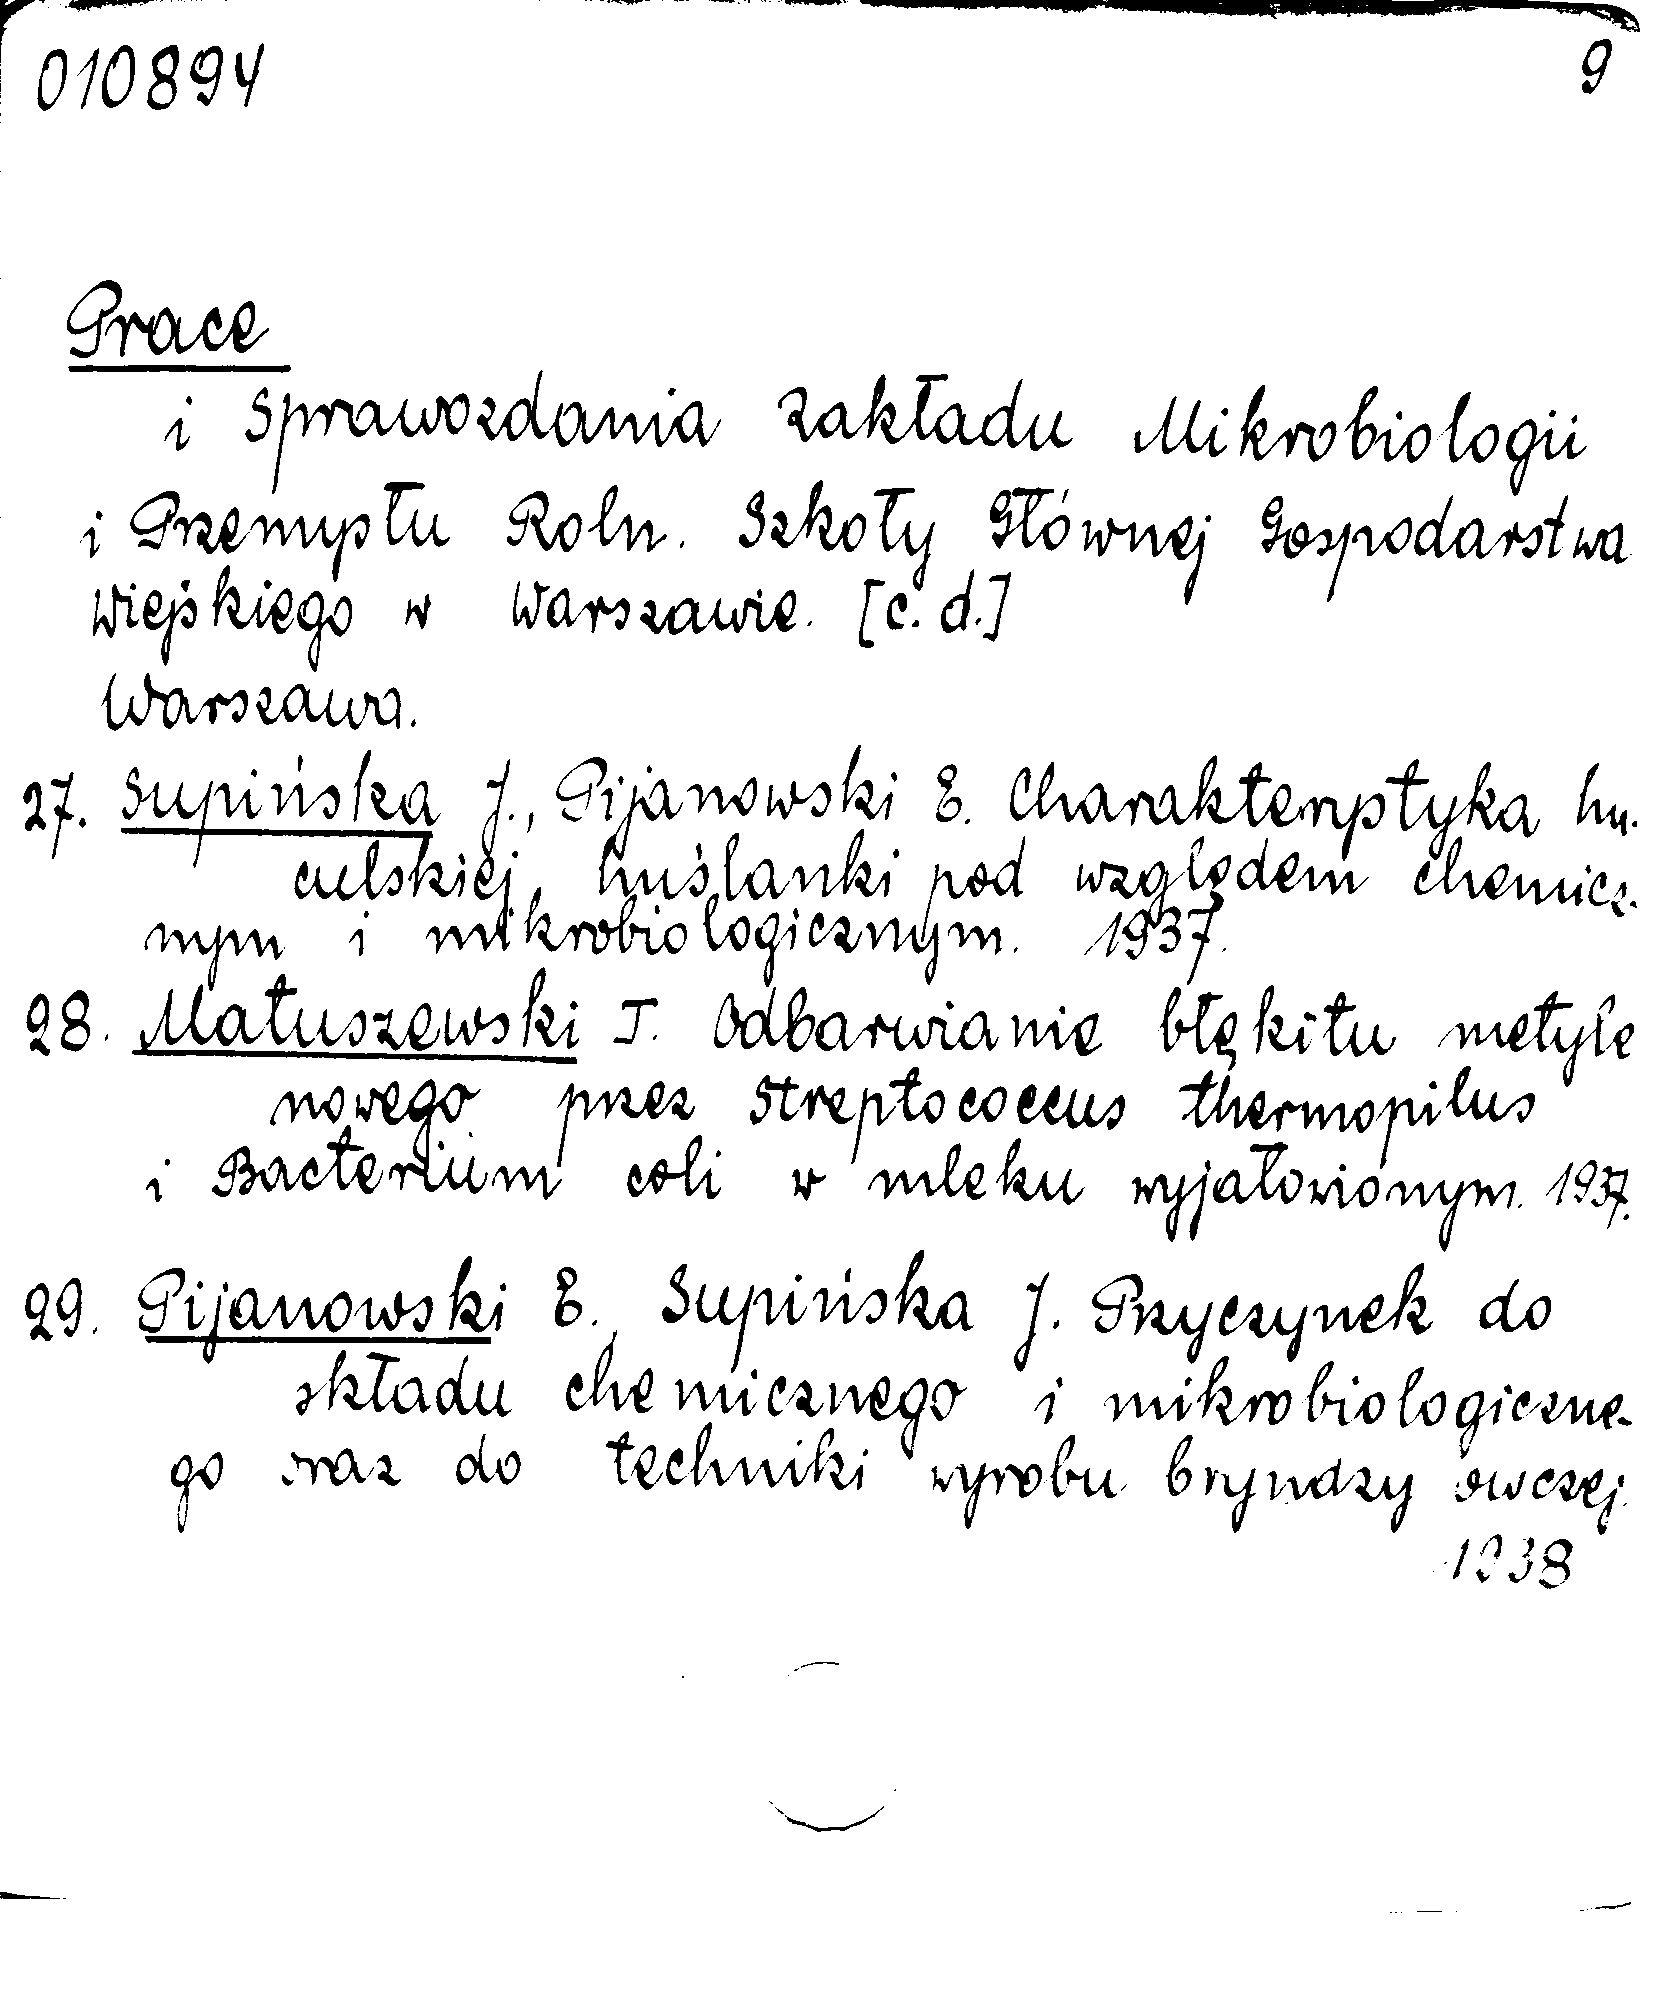 010894 9
Prace
i Sprawozdania Zakładu Mikrobiologii
i Przemysłu Roln. Szkoły Głównej Gospodarstwa
Wiejskiego w Warszawie. [c. d.]
Warszawa.
27. Supińska J., Pijanowski E. Charakterystyka hu-
culskiej huślanki pod względem chemicz-
nym i mikrobiologicznym. 1937.
28. Matuszewski T. Odbarwianie błękitu metyle
nowego przez Streptococcus thermopilus
i Bacterium coli w mleku wyjałowionym. 1937.
29. Pijanowski E., Supińska J. Przyczynek do
składu chemicznego i mikrobiologiczne-
go oraz do techniki wyrobu bryndzy owczej.
1938